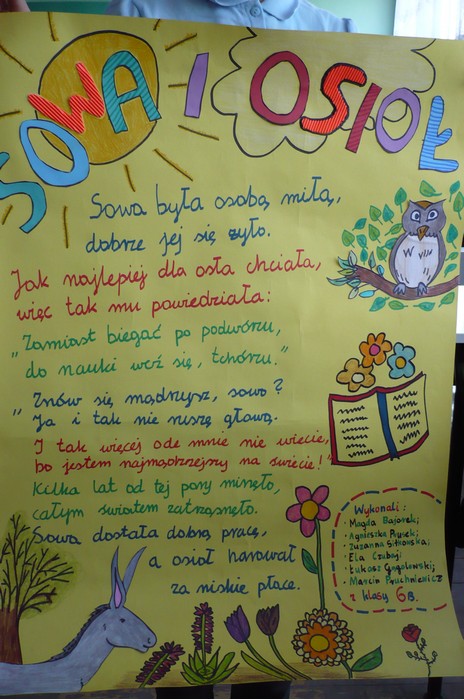 SOWA I OSIOŁ
Sowa była osobą miłą,
dobrze jej się żyło.
Jak najlepiej dla osła chciała,
więc tak mu powiedziała:
"Zamiast biegać po podwórzu,
do nauki weź się, tchórzu."
"Znów się mądrzysz, sowo?
Ja i tak nie ruszę głową.
I tak więcej ode mnie nie wiecie,
bo jestem najmądrzejszy na świecie!"
Kilka lat od tej pory minęło,
całym światem zatrzęsło.
Sowa dostała dobrą pracę,
a osioł harował
za niskie płace.
Wykonali:
• Magda Bajorek;
• Agnieszka
• Zuzanna Sitkowska;
• Ela Czuboj;
• Łukasz Gogolewski;
• Marcin
z klasy 6B.